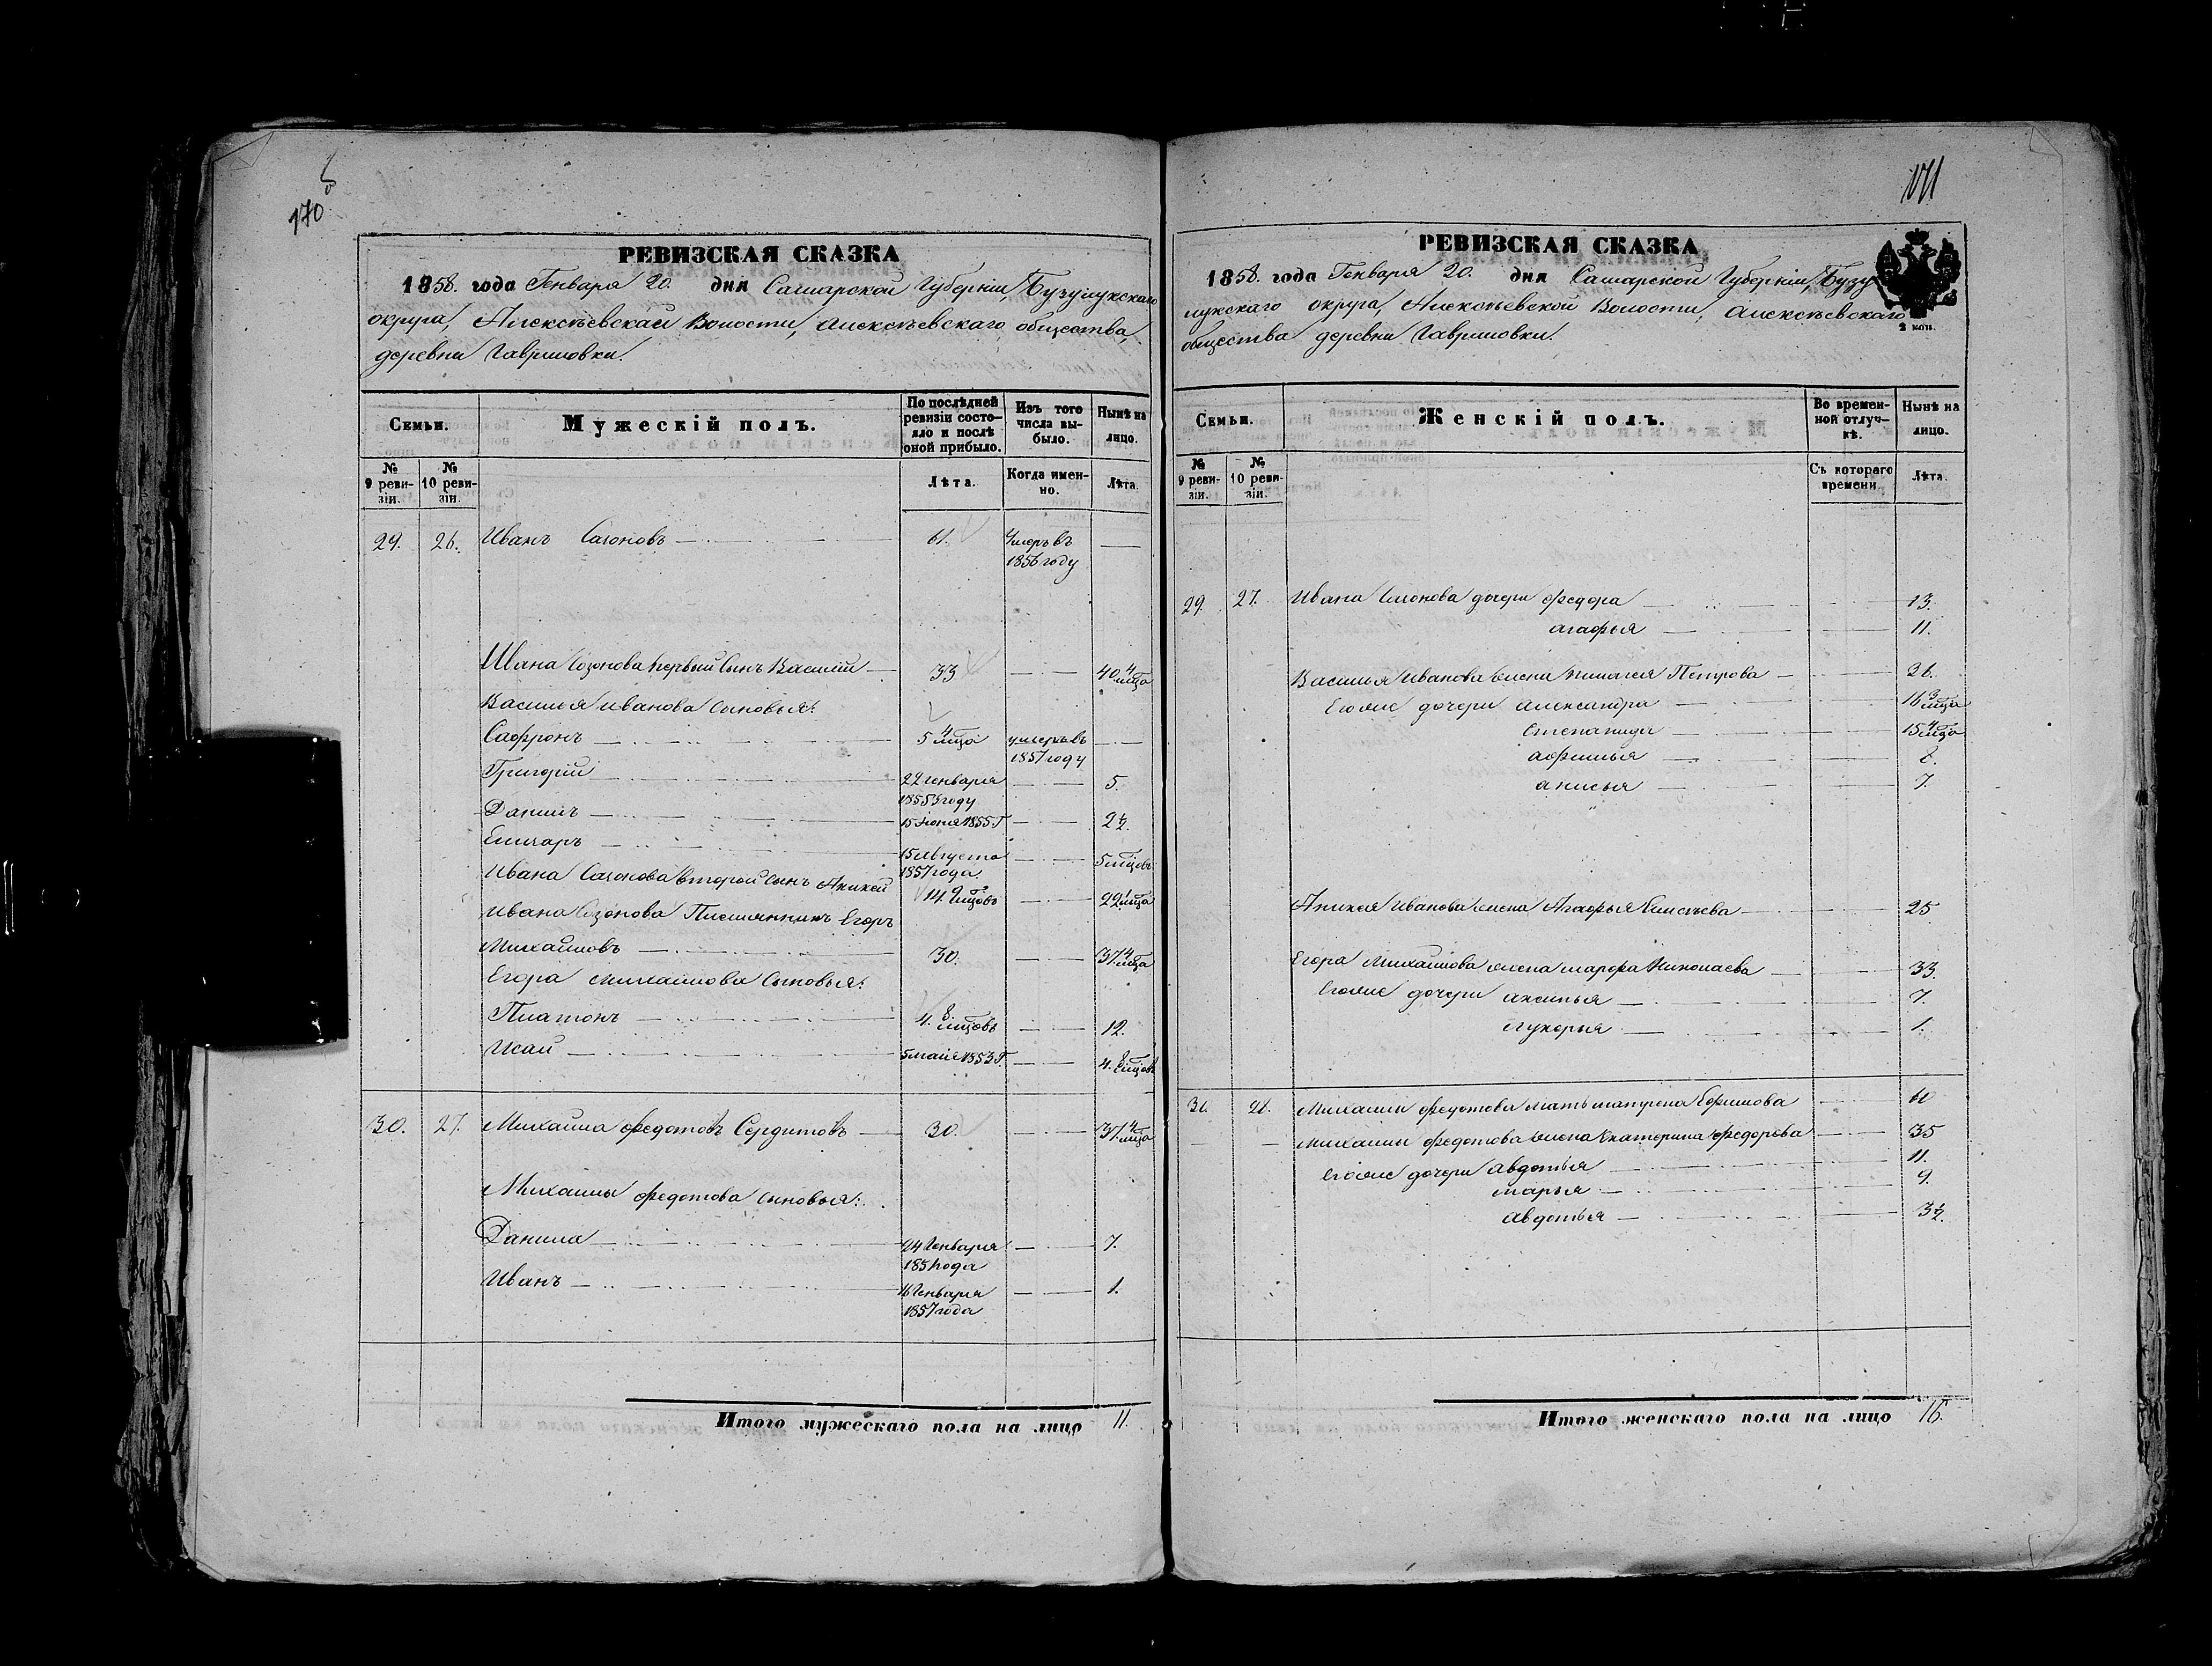 170
РЕВИЗСКАЯ СКАЗКА
1858. года Генваря 20. дня Самарской Губерніи, Бузулукскаго
округа, Алексѣевской Волости, Алексѣевскаго общества,
деревни Гавриловки.
Семьи.
Мужескій полъ.
По послѣдней ревизіи состояло и послѣ оной прибыло.
Изъ того числа выбыло.
Нынѣ на лицо.
№ 9 ревизіи.
№ 10 ревизіи.
Лѣта.
Когда именно.
Лѣта.
29. 26. Иванъ Сазоновъ 61. Умеръ въ 1856 году
Ивана Созонова первый сынъ Василій 33 40 4 мца
Василья Иванова сыновья:
Сафронъ 5 4 мца умеръ въ 1857 году
Григорій 22 генваря 1853 году 5.
Данилъ 15 Июня 1855 г 2½.
Елизаръ 15 Августа 1857 года. 5 мцовъ
Ивана Сазонова второй сынъ Аникей 14. 9 мцовъ 22 1 мца
Ивана Созонова Племянникъ Егоръ
Михайловъ 30. 37 4 мца
Егора Михайлова сыновья:
Платонъ 4. 8 мцовъ 12.
Исай 5 мая 1853 г. 4. 8 мцовъ
30. 27. Михайла Федотовъ Сердитовъ 30. 37 4 мца
Михайлы Федотова сыновья:
Данила 24 Генваря 1851 года 7.
Иванъ 16 Генваря 1857 года 1.
Итого мужескаго пола на лицо 11.
171
РЕВИЗСКАЯ СКАЗКА
1858. года Генваря 20. дня Самарской Губерніи, Бузу
лукскаго округа, Алексѣевской Волости, Алексѣевскаго
общества деревни Гавриловки.
2 коп.
Семьи.
Женскій полъ.
Во временной отлучкѣ.
Нынѣ на лицо.
№ 9 ревизіи.
№ 10 ревизіи.
Съ котораго времени
Лѣта.
29. 27. Ивана Сазонова дочери Федора 13.
Агафья 11.
Василья Иванова жена Пилагея Петрова 36.
Его же дочери Александра 16 3 мца
Степанида 15 4 мца
Афимья 8.
Анисья 7.
Аникея Иванова жена Агафья Елисѣева 25
Егора Михайлова жена Марфа Николаева 33.
Его же дочери Аксинья 7.
Лукерья 1.
28. Михайлы Федотова мать Матрена Ефимова 60
Михайлы Федотова жена Екатерина Федорова 35
Его же дочери Авдотья 11.
Марья 9.
Авдотья 3½.
Итого женскаго пола на лицо 16.